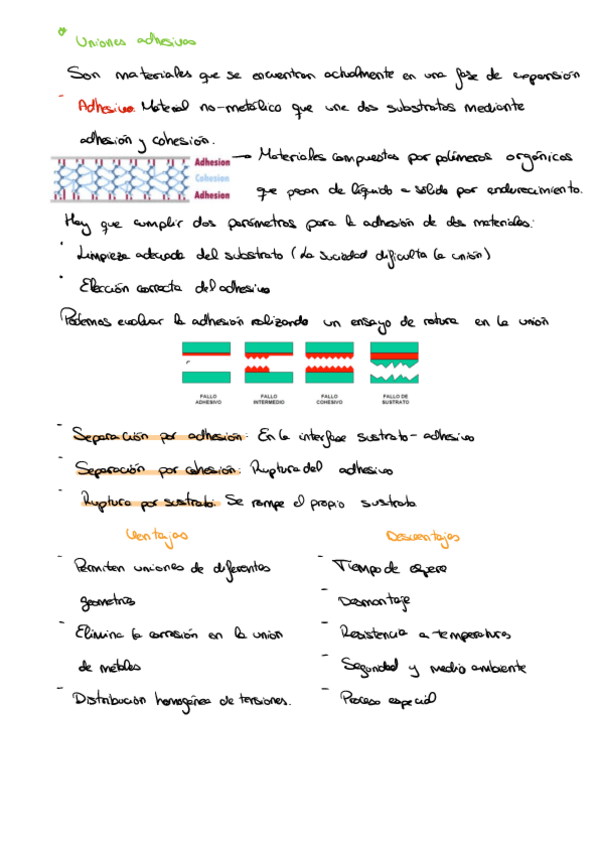 Uniones adhesivas
Son materiales que se encuentran actualmente en una fase de expansión
- Adhesivo: Material no-metálico que une dos substratos mediante
adhesión y cohesión.
Adhesion
Cohesion
Adhesion
→ Materiales compuestos por polímeros orgánicos
que pasan de líquido a sólido por endurecimiento.
Hay que cumplir dos parámetros para la adhesión de dos materiales:
• Limpieza adecuada del substrato (La suciedad dificulta la unión)
• Elección correcta del adhesivo
Podemos evaluar la adhesión realizando un ensayo de rotura en la unión
FALLO ADHESIVO
FALLO INTERMEDIO
FALLO COHESIVO
FALLO DE SUSTRATO
- Separación por adhesión: En la interfase sustrato-adhesivo
- Separación por cohesión: Ruptura del adhesivo
- Ruptura por sustrato: Se rompe el propio sustrato
Ventajas
- Permiten uniones de diferentes
geometrías
- Elimina la corrosión en la unión
de metales
- Distribución homogénea de tensiones.
Desventajas
- Tiempo de espera
- Desmontaje
- Resistencia a temperaturas
- Seguridad y medio ambiente
- Proceso especial